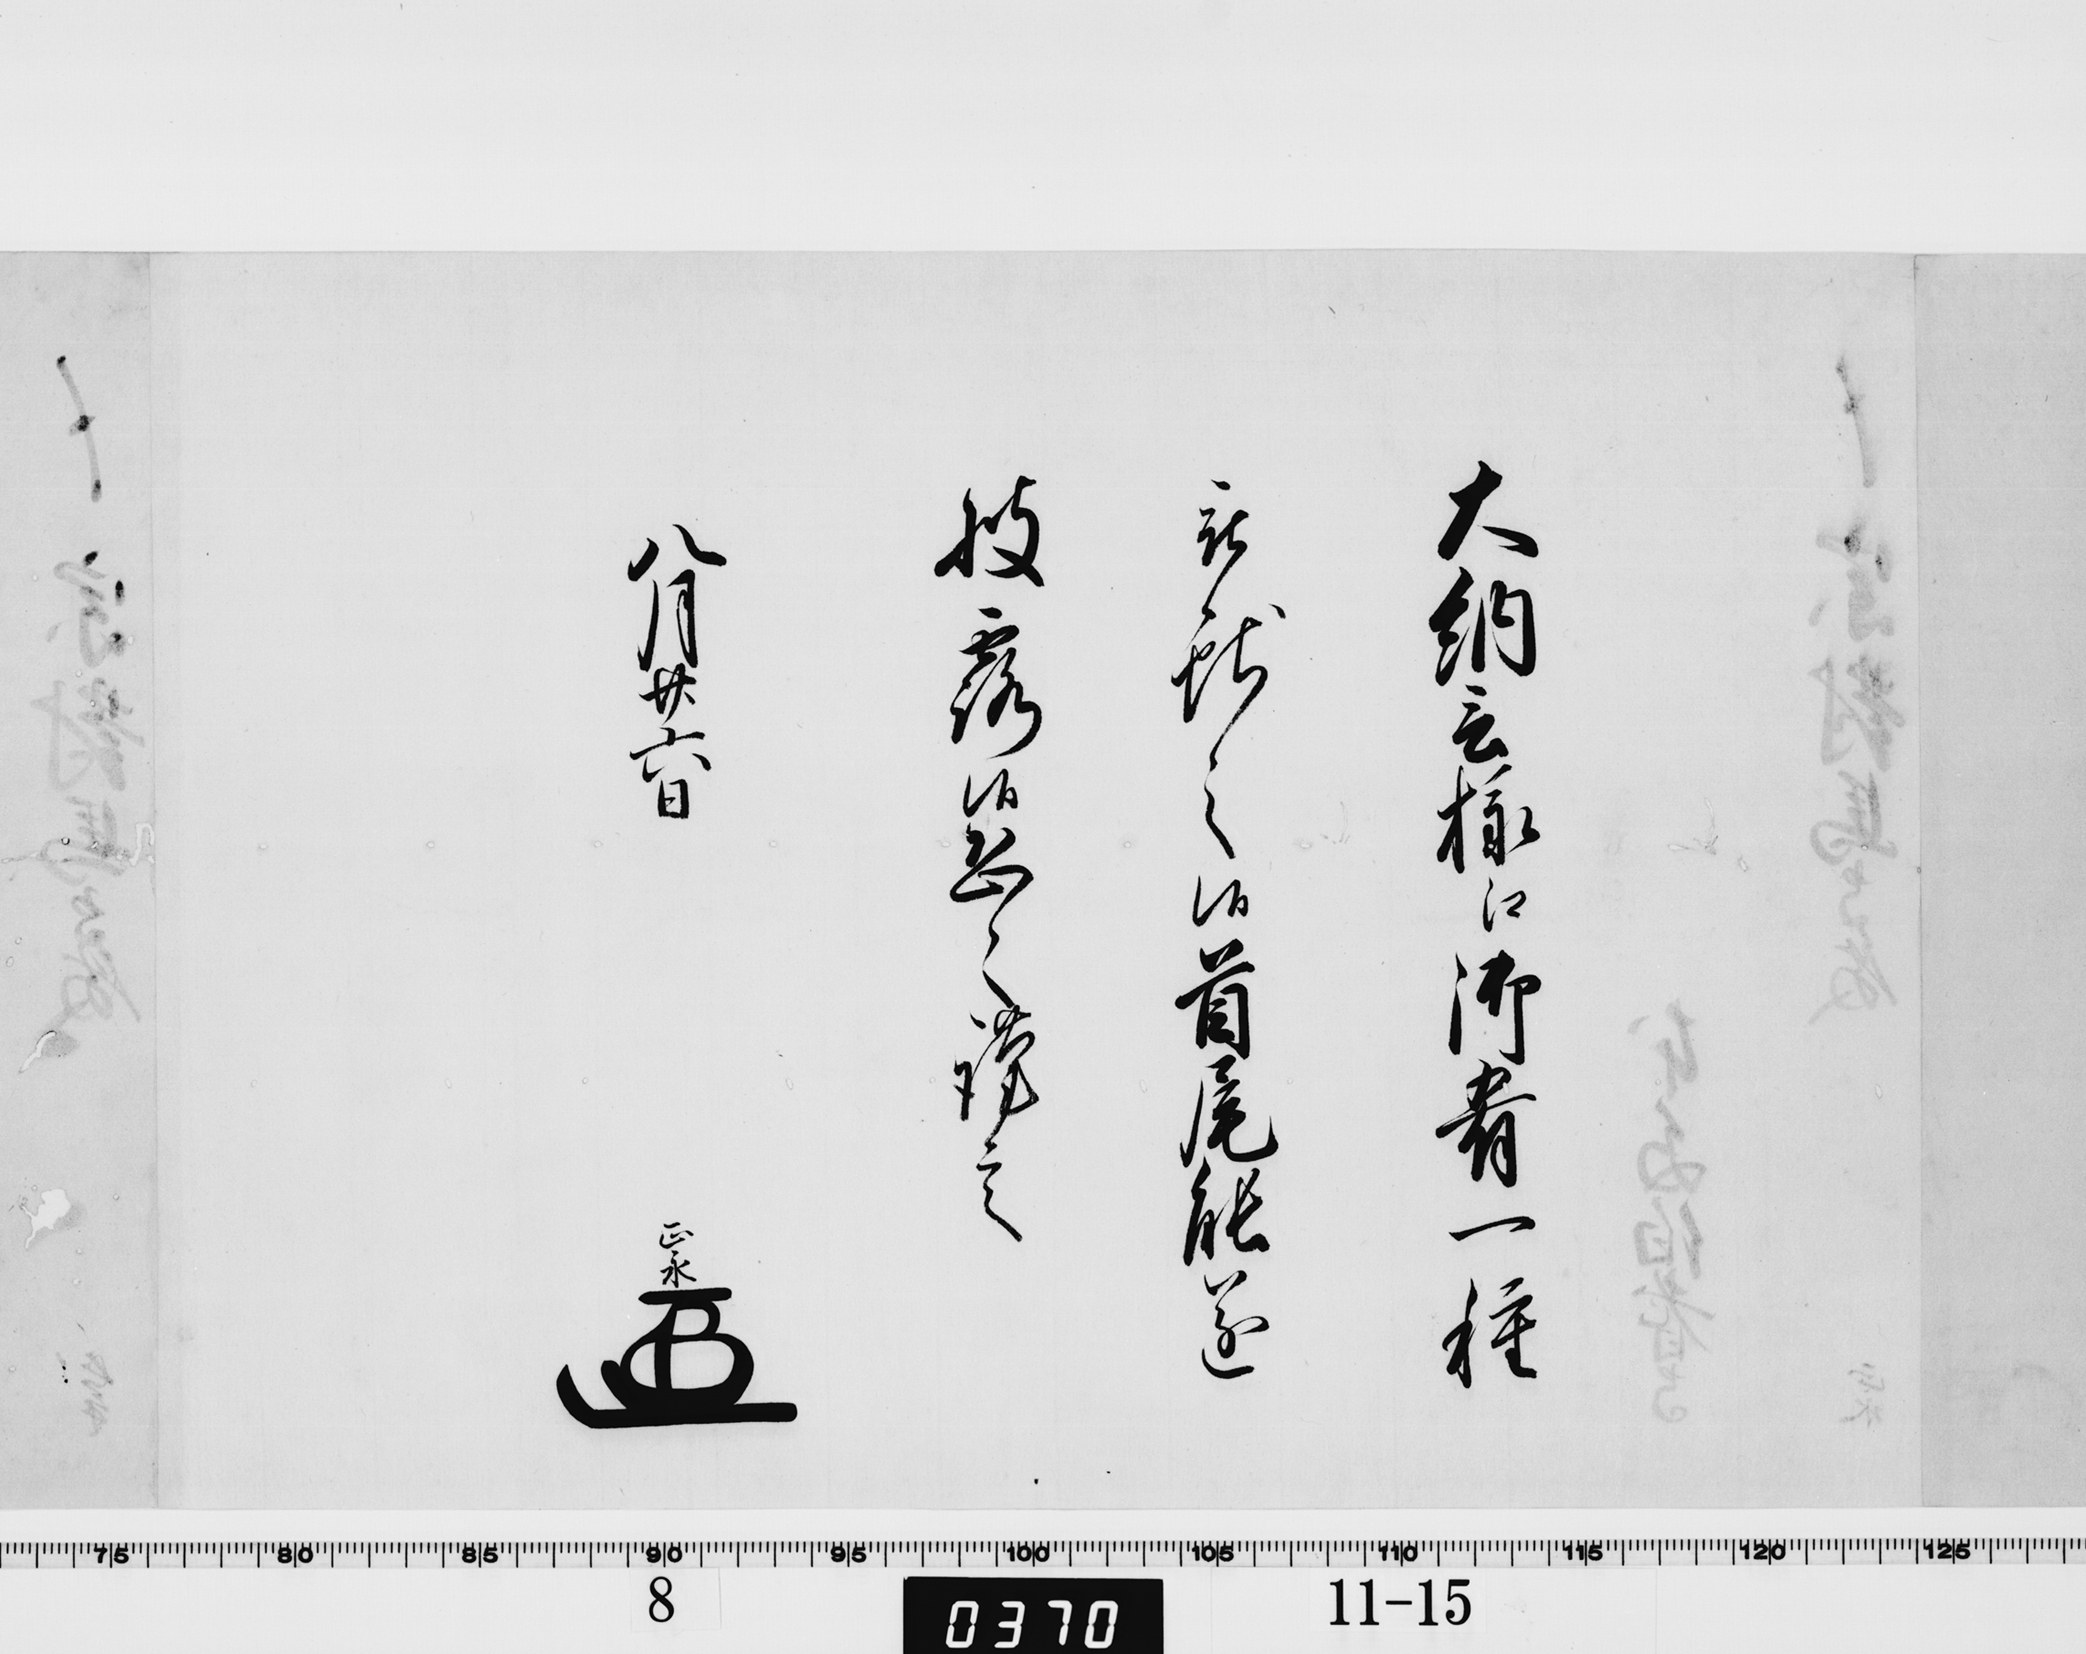 大納言様江御肴一種
被献之候首尾能遂
披露候恐々謹言
八月廿六日
正永
75 80 85 90 95 100 105 110 115 120 125
8
0370
11-15